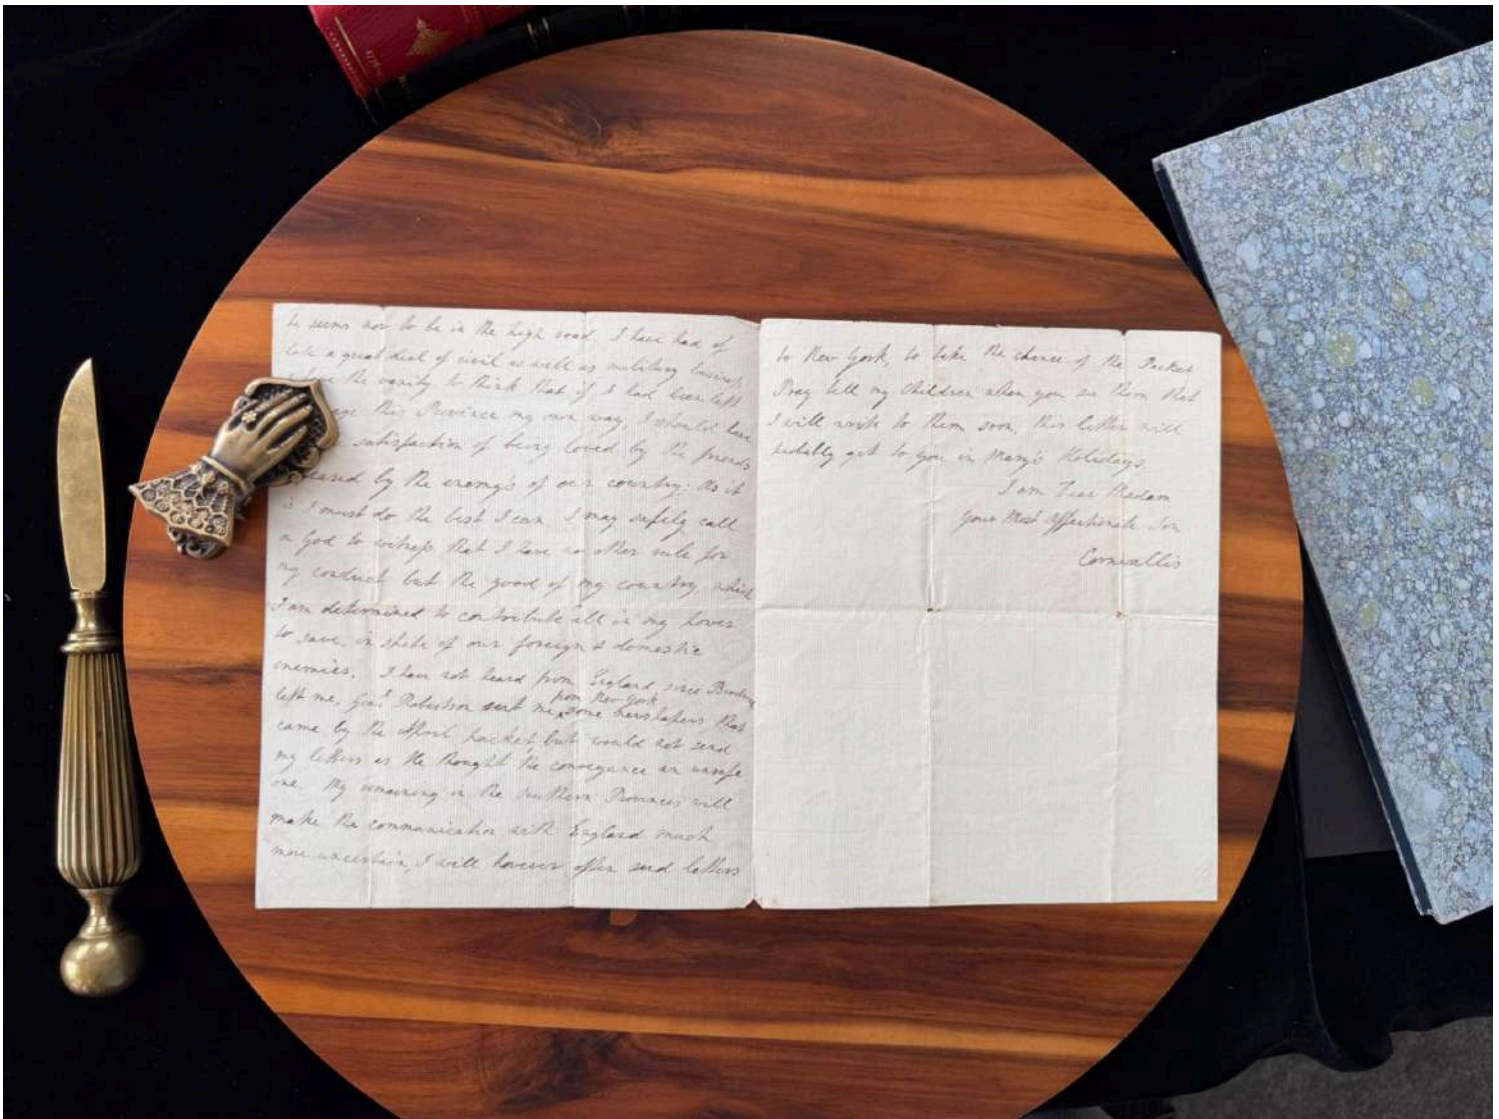 he seems now to be in the high road. I have had of
late a great deal of civil as well as military business,
have the vanity to think that if I had been left
this Province my own way, I should have
satisfaction of being loved by the friends
by the enemy's of our country: As it
is I must do the best I can. I may safely call
on God to witness that I have no other rule for
my conduct but the good of my country which
I am determined to contribute all in my power
to save, in spite of our foreign & domestic
enemies. I have not heard from England, since
from New York
left me, Genl. Robertson sent me some newspapers that
came by the April packet, but would not send
my letters as he thought the conveyance an unsafe
one. My remaining in the Southern Provinces will
make the communication with England much
more uncertain, I will however often send letters
to New York, to take the chance of the Packet
Pray tell my Children when you see them that
I will write to them soon, this letter will
probably get to you in Mary's Holidays.
I am Dear Madam
your Most Affectionate Son
Cornwallis